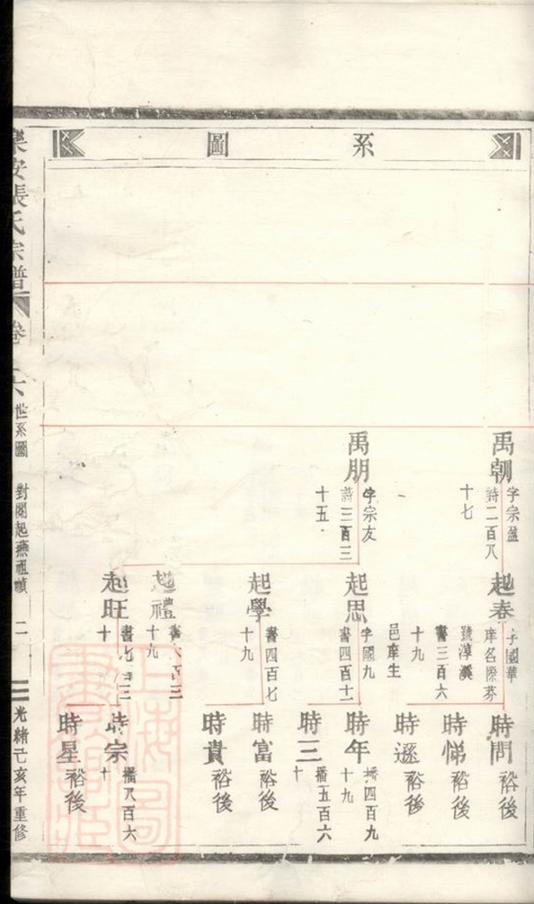 系圖
禹朝
字宗盈
詩二百八
十七
禹朋
字宗友
詩三百三
十五
起春
字國華
庠名際芬
號淳溪
書三百六
十九
邑庠生
起思
字國九
書四百十一
起學
書四百七
十九
起禮
十九
起旺
書七百三
十
時問
裕後
時悌
裕後
時遜
裕後
時年
播四百九
十九
時三
播五百六
十
時富
裕後
時貴
裕後
時宗
播八百六
十
時星
裕後
集安張氏宗譜
卷
六
世系圖
二
光緒己亥年重修